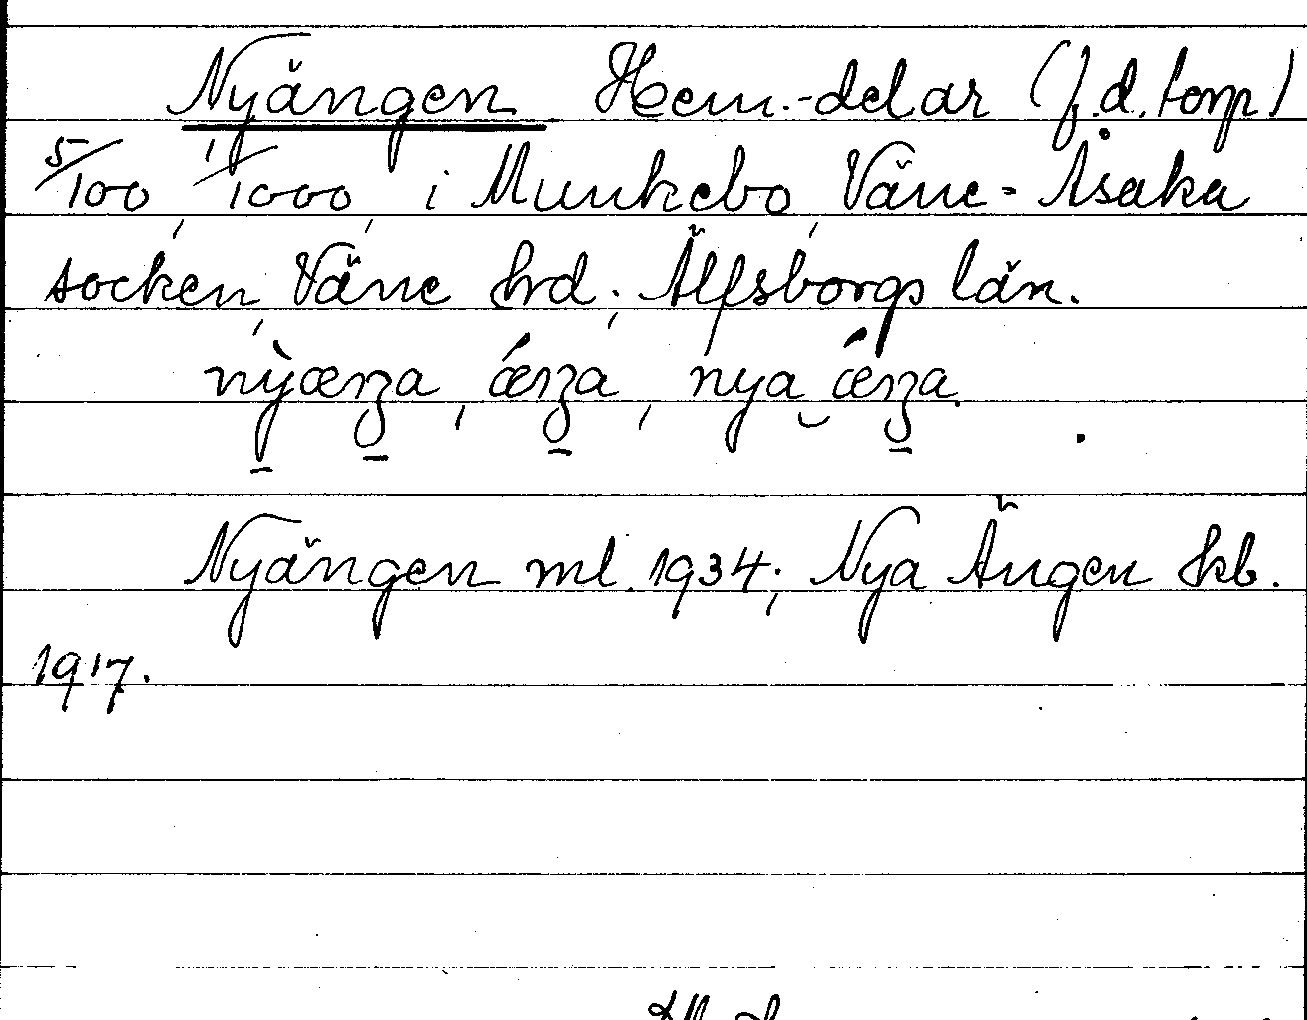 Nyängen Hem.-delar (f.d. torp)
5/100, 1/1000, i Munkebo, Väne-Åsaka
socken, Väne hrd; Älfsborgs län.
Nyängen ml. 1934; Nya Ängen kb.
1917.